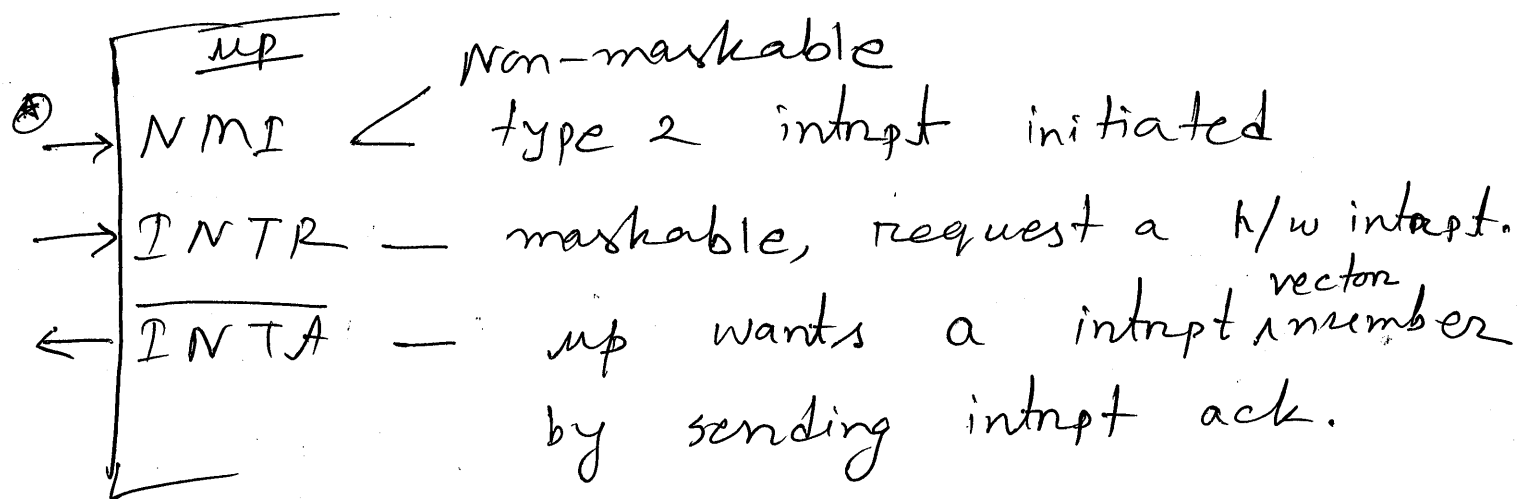 μp
Non-maskable
NMI < type 2 intrpt initiated
INTR — maskable, request a h/w intrpt.
vector
I̅N̅T̅A̅ — μp wants a intrpt ∧ number
by sending intrpt ack.